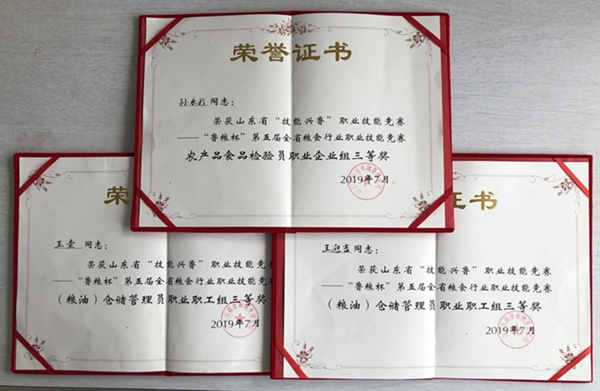 荣誉证书
同志：
荣获山东省“技能兴鲁”职业技能竞赛
——“鲁粮杯”第五届全省粮食行业职业技能竞赛
农产品食品检验员职业企业组三等奖
2019年7月
荣
王壹同志：
荣获山东省“技能兴鲁”职业技能竞赛
——“鲁粮杯”第五届全省粮食行业职业技能竞赛
（粮油）仓储管理员职业职工组三等奖
2019年7月
证书
王迎吉同志：
荣获山东省“技能兴鲁”职业技能竞赛
——“鲁粮杯”第五届全省粮食行业职业技能竞赛
（粮油）仓储管理员职业职工组三等奖
2019年7月